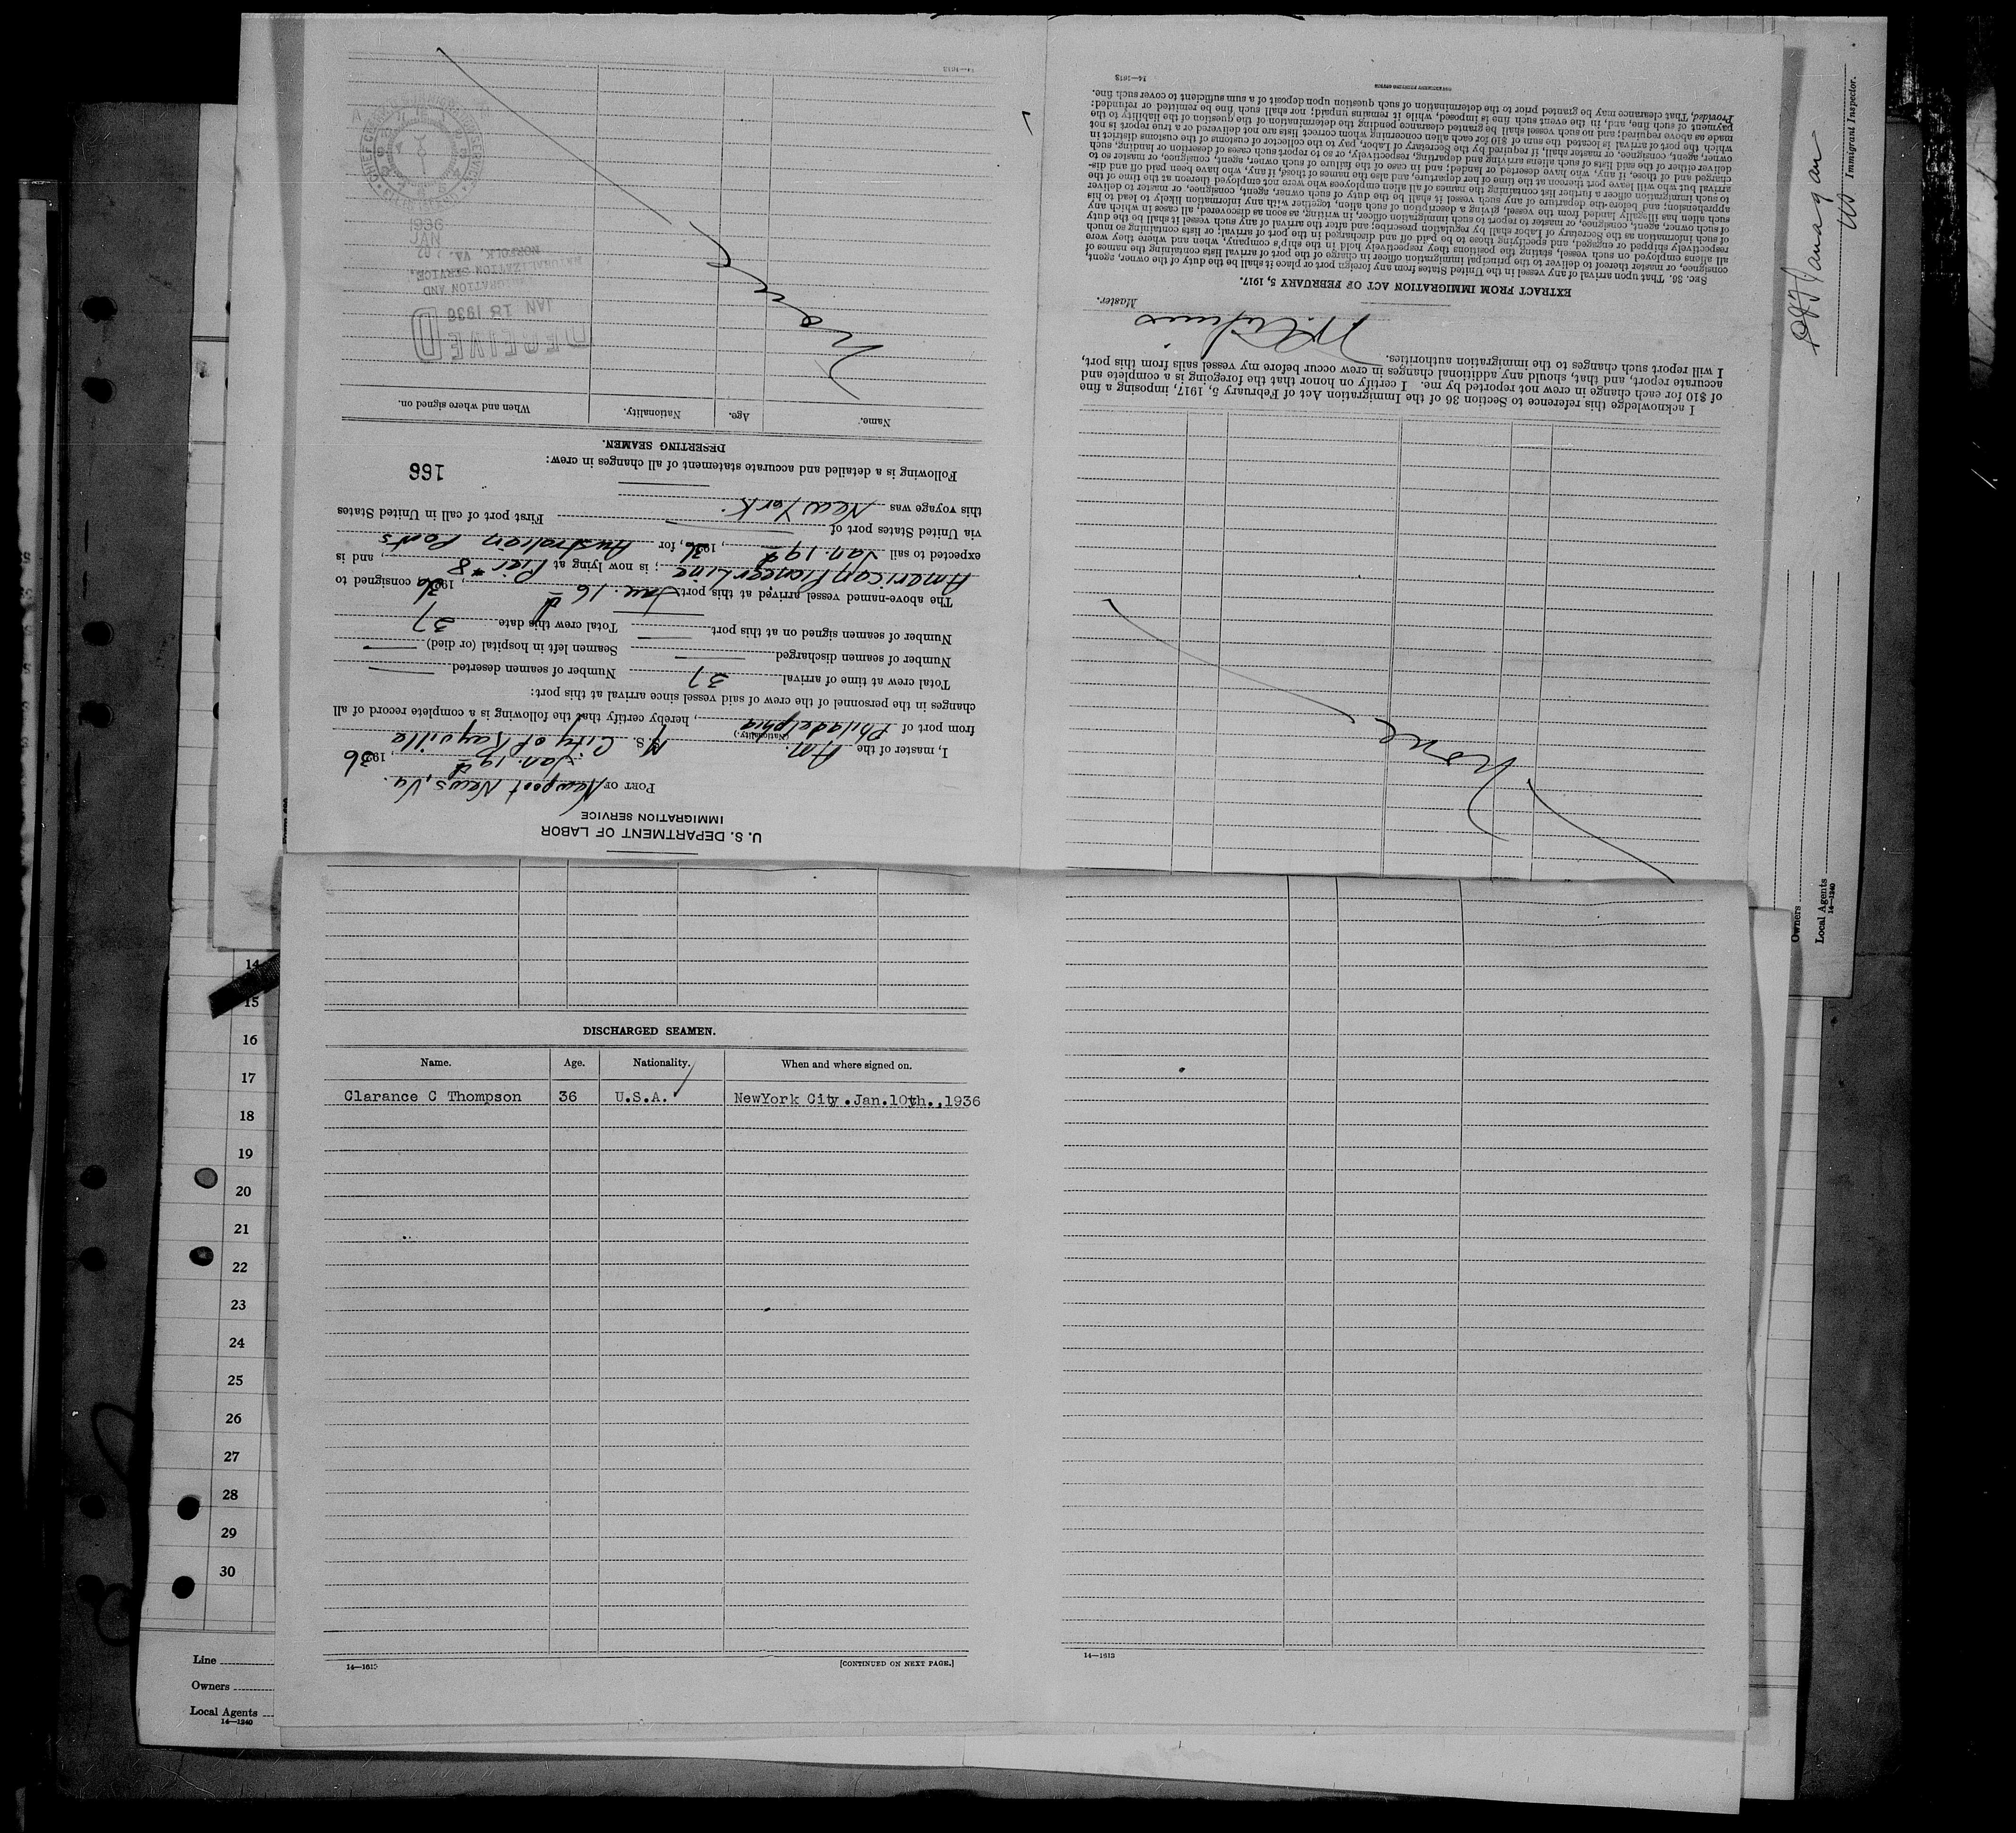 U. S. DEPARTMENT OF LABOR
IMMIGRATION SERVICE
PORT OF Newport News, Va.
Jan. 19th, 1936
I, master of the Am M.S. City of Rayville
(Nationality.)
from port of Philadelphia, hereby certify that the following is a complete record of all
changes in the personnel of the crew of said vessel since arrival at this port:
Total crew at time of arrival 37 Number of seamen deserted —
Number of seamen discharged — Seamen left in hospital (or died) —
Number of seamen signed on at this port — Total crew this date 37
The above-named vessel arrived at this port Jan. 16th, 1936 consigned to
American Pioneer Line; is now lying at Pier #8, and is
expected to sail Jan. 19th, 1936, for Australian Ports
via United States port of — First port of call in United States
this voyage was New York.
Following is a detailed and accurate statement of all changes in crew:
166
DESERTING SEAMEN.
Name. Age. Nationality. When and where signed on.
None
RECEIVED
JAN 18 1936
IMMIGRATION AND
NATURALIZATION SERVICE,
NORFOLK, VA.
JAN
1936
14—1613
None
I acknowledge this reference to Section 36 of the Immigration Act of February 5, 1917, imposing a fine
of $10 for each change in crew not reported by me. I certify on honor that the foregoing is a complete and
accurate report, and that, should any additional changes in crew occur before my vessel sails from this port,
I will report such changes to the immigration authorities.
Master.
EXTRACT FROM IMMIGRATION ACT OF FEBRUARY 5, 1917.
SEC. 36. That upon arrival of any vessel in the United States from any foreign port or place it shall be the duty of the owner, agent,
consignee, or master thereof to deliver to the principal immigration officer in charge of the port of arrival lists containing the names of
all aliens employed on such vessel, stating the positions they respectively hold in the ship's company, when and where they were
respectively shipped or engaged, and specifying those to be paid off and discharged in the port of arrival; or lists containing so much
of such information as the Secretary of Labor shall by regulation prescribe; and after the arrival of any such vessel it shall be the duty
of such owner, agent, consignee, or master to report to such immigration officer, in writing, as soon as discovered, all cases in which any
such alien has illegally landed from the vessel, giving a description of such alien, together with any information likely to lead to his
apprehension; and before the departure of any such vessel it shall be the duty of such owner, agent, consignee, or master to deliver
to such immigration officer a further list containing the names of all alien employees who were not employed thereon at the time of the
arrival but who will leave port thereon at the time of her departure, and also the names of those, if any, who have been paid off and dis-
charged and of those, if any, who have deserted or landed; and in case of the failure of such owner, agent, consignee, or master so to
deliver either of the said lists of such aliens arriving and departing, respectively, or so to report such cases of desertion or landing, such
owner, agent, consignee, or master, shall, if required by the Secretary of Labor, pay to the collector of customs of the customs district in
which the port of arrival is located the sum of $10 for each alien concerning whom correct lists are not delivered or a true report is not
made as above required; and no such vessel shall be granted clearance pending the determination of the question of the liability to the
payment of such fine, and, in the event such fine is imposed, while it remains unpaid; nor shall such fine be remitted or refunded:
Provided, That clearance may be granted prior to the determination of such question upon deposit of a sum sufficient to cover such fine.
14—1613
DISCHARGED SEAMEN.
Name. Age. Nationality. When and where signed on.
Clarance C Thompson 36 U.S.A. NewYork City.Jan.10th.,1936
14—1613
[CONTINUED ON NEXT PAGE.]
14—1613
14
15
16
17
18
19
20
21
22
23
24
25
26
27
28
29
30
Line
Owners
Local Agents
14—1240
Immigrant Inspector.
Owners
Local Agents
14—1240